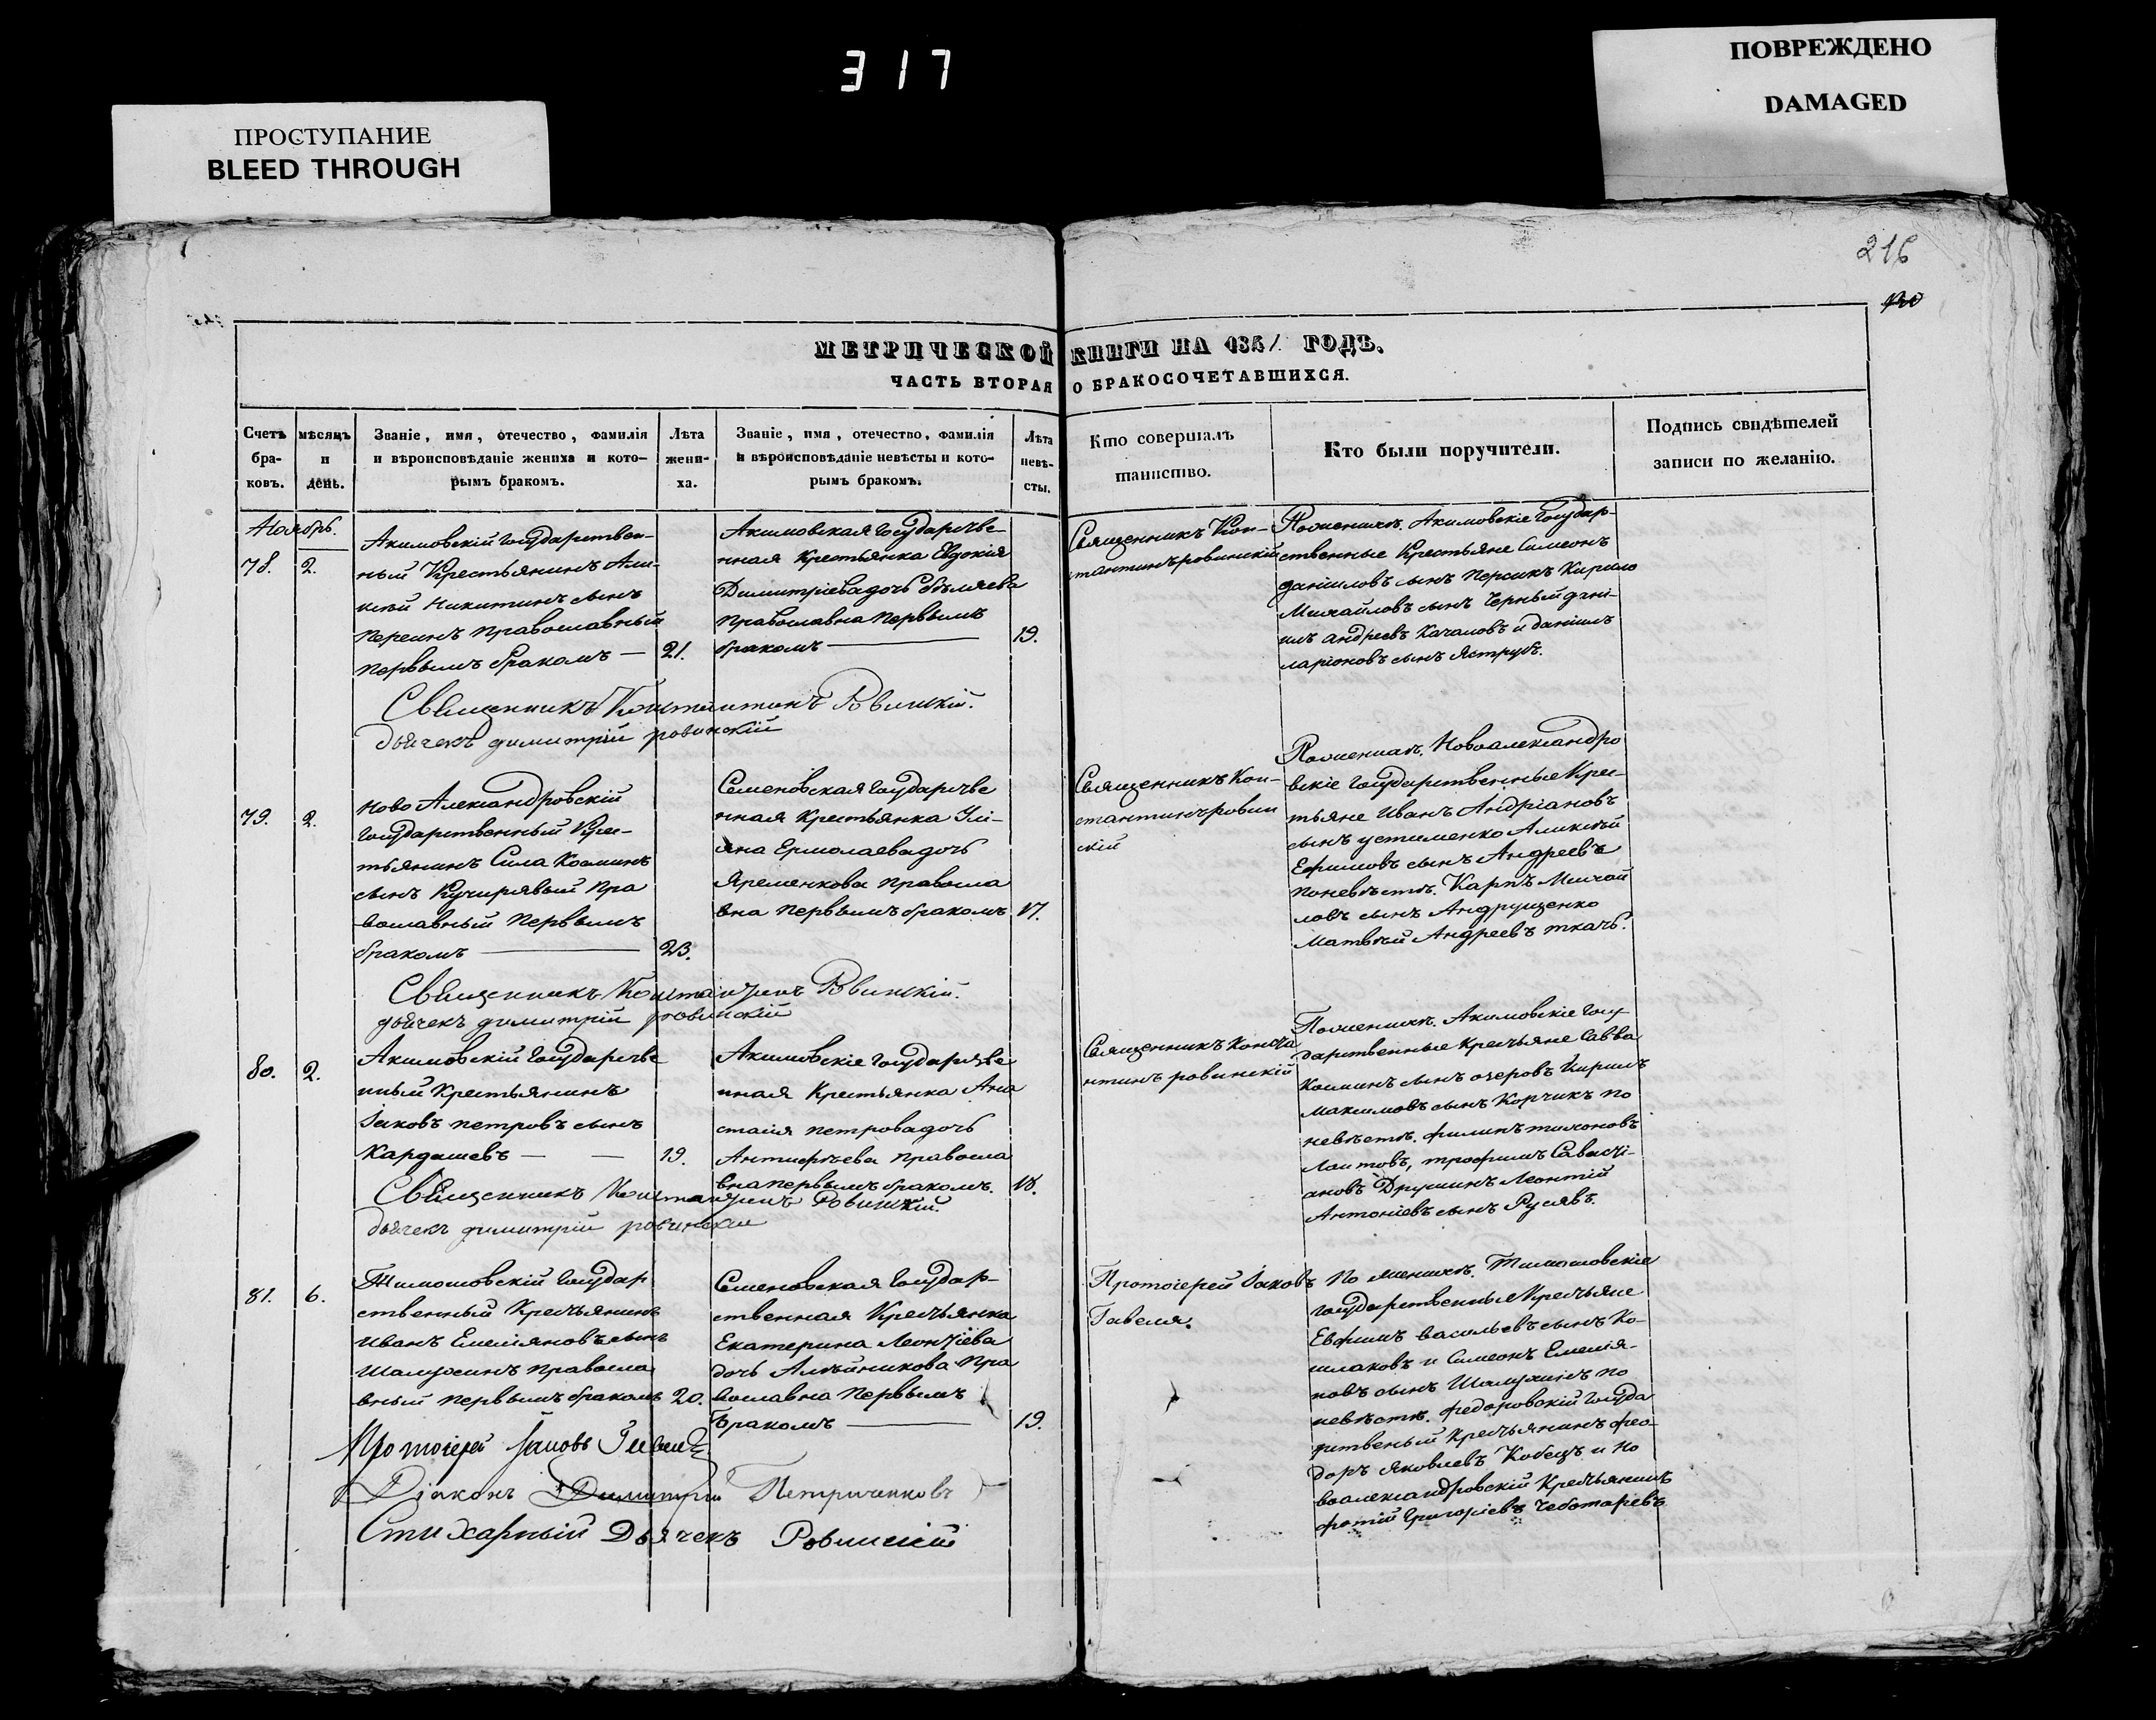 317
ПРОСТУПАНИЕ
BLEED THROUGH
ПОВРЕЖДЕНО
DAMAGED
216
МЕТРИЧЕСКОЙ КНИГИ НА 1851 ГОДЪ.
ЧАСТЬ ВТОРАЯ О БРАКОСОЧЕТАВШИХСЯ.
Счетъ
бра-
ковъ.
мѣсяцъ
и
день.
Званіе, имя, отечество, фамилія
и вѣроисповѣданіе жениха и кото-
рымъ бракомъ.
Лѣта
жени-
ха.
Званіе, имя, отечество, фамилія
и вѣроисповѣданіе невѣсты и кото-
рымъ бракомъ.
Лѣта
невѣ-
сты.
Кто совершалъ
таинство.
Кто были поручители.
Подпись свидѣтелей
записи по желанію.
Ноябрь.
78.
2.
Акимовскій государствен-
ный Крестьянинъ
Никитинъ сынъ
православный
первымъ бракомъ —
21.
Акимовская государстве
нная Крестьянка Евдокія
Димитріева дочь Бѣляева
православна первымъ
бракомъ —
19.
Священникъ Кон-
стантинъ ровинскій
По женихѣ. Акимовскіе государ-
ственные Крестьяне Симеонъ
даніиловъ сынъ Кирило
Михайловъ сынъ Черный дані-
илъ андреевъ Качаловъ и даніилъ
ларіоновъ сынъ Яструбъ.
Священникъ Константинъ Ровинскій.
дьячекъ димитрій ровинскій
79.
2.
Ново Александровскій
государственный Крес-
тьянинъ Сила Косминъ
сынъ Кучирявый пра
вославный первымъ
бракомъ —
23.
Семеновская государстве
нная Крестьянка Улі-
яна Ермолаева дочь
Яременкова правосла
вна первымъ бракомъ
17.
Священникъ Кон-
стантинъ ровин
скій
По женихѣ. Новоалександро
вскіе государственные Крес-
тьяне Иванъ Андріановъ
сынъ устименко Аликсѣй
Ефимовъ сынъ Андреевъ
по невѣстѣ. Карпъ Михай
ловъ сынъ Андрущенко
Матвѣй Андреевъ ткачь.
Священникъ Константинъ Ровинскій.
дьячекъ димитрій ровинскій
80.
2.
Акимовскій государстве
нный Крестьянинъ
Іаковъ петровъ сынъ
Кардашевъ — —
19.
Акимовскіе государстве
нная Крестьянка Ана
стасія петрова дочь
Антифѣева правосла
вна первымъ бракомъ.
18.
Священникъ Конста
нтинъ ровинскій
По женихѣ. Акимовскіе госу
дарственные Крестьяне Савва
Косминъ сынъ озеровъ Кирилъ
Максимовъ сынъ Корчикъ по
невѣстѣ. филипъ тихоновъ
трофимъ Савасті-
ановъ Леонтій
Антоніевъ сынъ
Священникъ Константинъ Ровинскій.
дьячекъ димитрій ровинскій
81.
6.
Тимошовскій государ
ственный Крестьянинъ
Иванъ Емеліяновъ сынъ
Шалухинъ правосла
вный первымъ бракомъ
20.
Семеновская государ-
ственная Крестьянка
Екатерина Леонтіева
дочь Алѣйникова пра
вославна первымъ
бракомъ —
19.
Протоіерей Іаковъ
Гавеля.
По женихѣ. Тимошовскіе
государственные Крестьяне
Евфимъ васильевъ сынъ Ко-
шлаковъ и Симеонъ Емелія-
новъ сынъ Шалухинъ по
невѣстѣ. федоровскій госуда
рственый Крестьянинъ фео-
доръ яковлевъ Кобецъ и Но
воалександровскій Крестьянинъ
фотій Григоріевъ Чеботаревъ
Протоіерей Іаковъ Гавеля
Діаконъ Димитрій Петриченковъ
Стихарный Дьячекъ Ровинскій